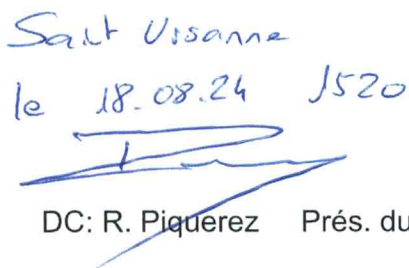 Saint Ursanne
le 18.08.24 1520
DC: R. Piquerez Prés. du